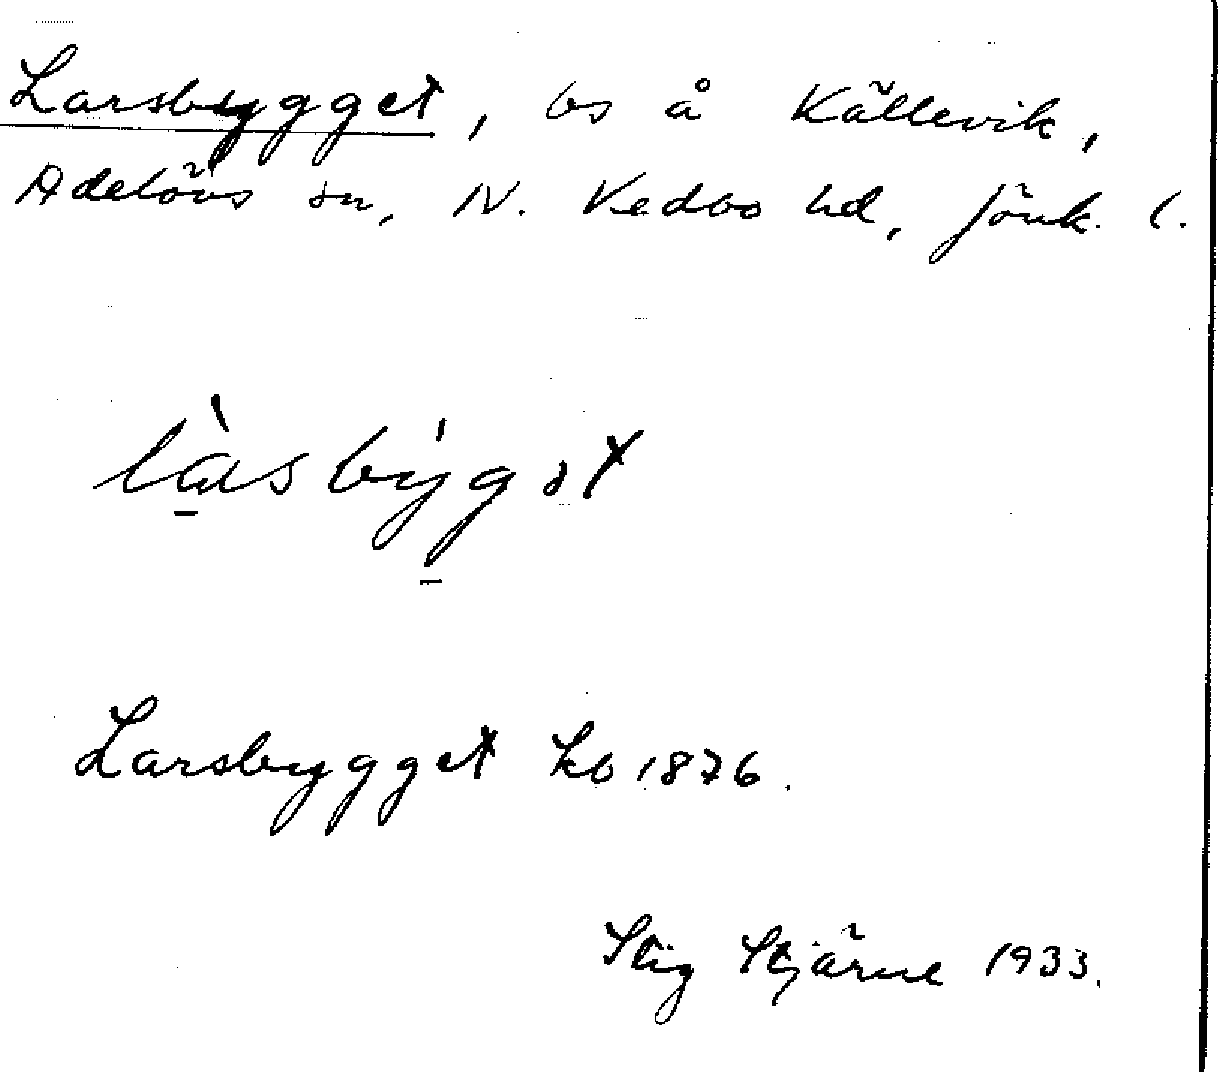 Larsbygget, bs å Källevik,
Adelövs sn, N. Vedbo hd, Jönk. l.
làsby̍gət
Larsbygget kb 1876.
Stig Stjärne 1933.